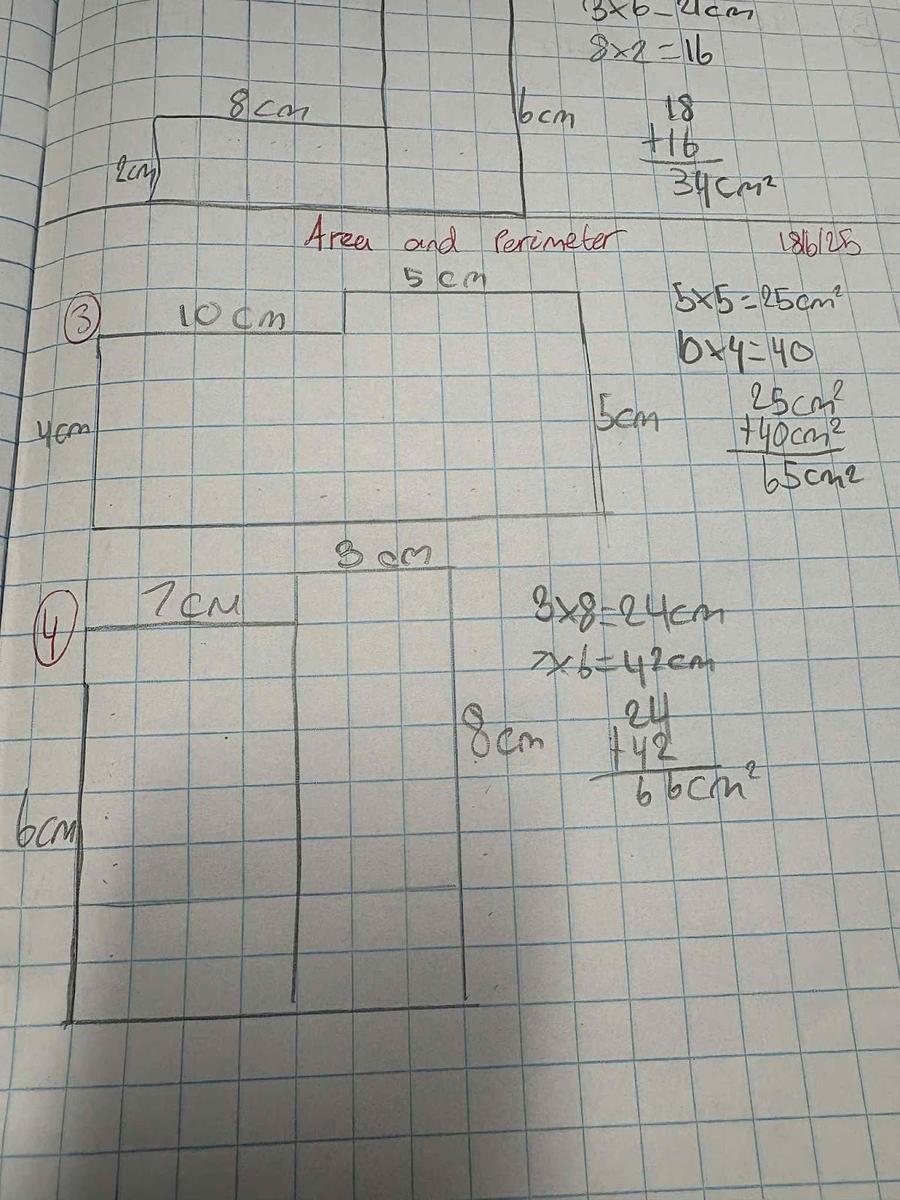 3x6-21cm
8x2=16
8cm
6cm
18
+16
2cm
34cm²
Area and Perimeter
18/6/25
5 cm
3
10 cm
5x5=25cm²
10x4=40
25cm²
4cm
5cm
+40cm²
65cm²
3 cm
4
7CM
3x8=24cm
7x6=42cm
24
8cm
+42
66cm²
6cm